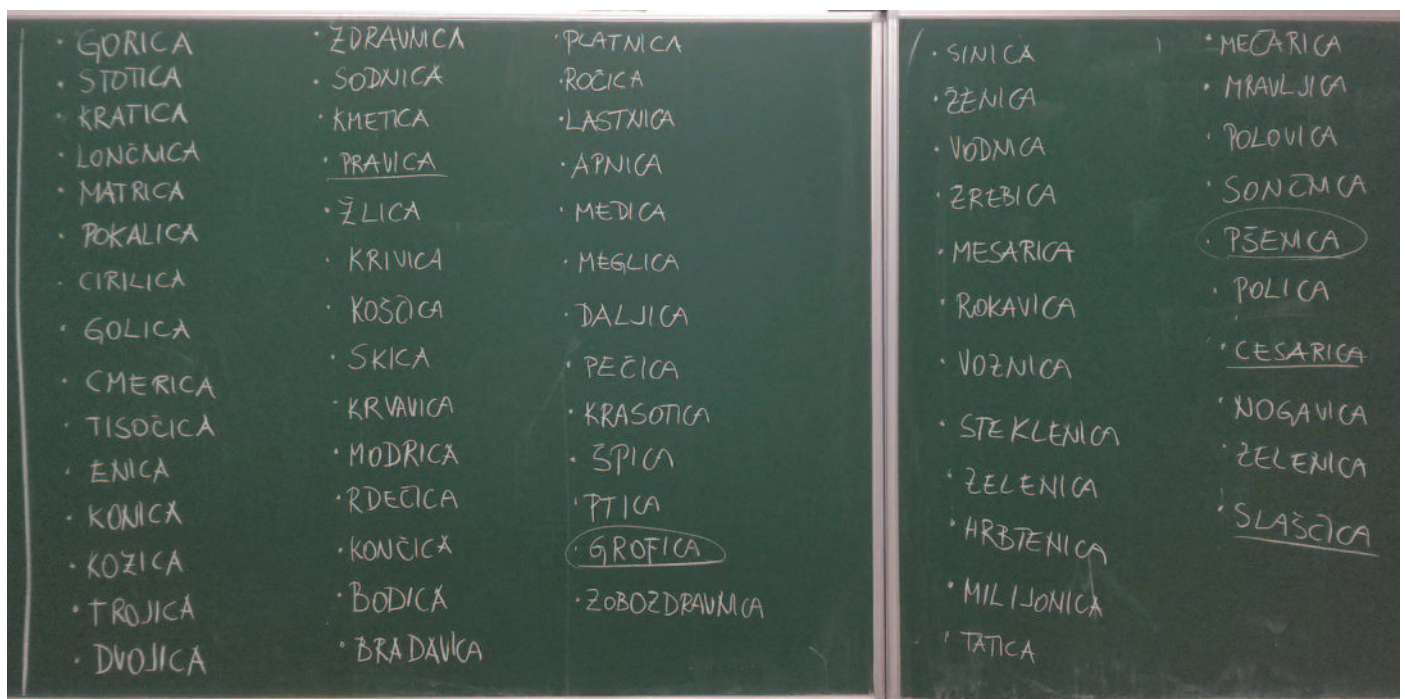 · GORICA
· STOTICA
· KRATICA
· LONČNICA
· MATRICA
· POKALICA
· CIRILICA
· GOLICA
· CMERICA
· TISOČICA
· ENICA
· KONICA
· KOZICA
· TROJICA
· DVOJICA
· ZDRAVNICA
· SODNICA
· KMETICA
· PRAVICA
· ŽLICA
· KRIVICA
· KOŠČICA
· SKICA
· KRVAVICA
· MODRICA
· RDEČICA
· KONČICA
· BODICA
· BRADAVICA
· PLATNICA
· ROČICA
· LASTNICA
· APNICA
· MEDICA
· MEGLICA
· DALJICA
· PEČICA
· KRASOTICA
· ŠPICA
· PTICA
· GROFICA
· ZOBOZDRAVNICA
· SINICA
· ŽENICA
· VODNICA
· ŽREBICA
· MESARICA
· ROKAVICA
· VOZNICA
· STEKLENICA
· ZELENICA
· HRBTENICA
· MILIJONICA
· TATICA
· MEČARICA
· MRAVLJICA
· POLOVICA
· SONČNICA
· PŠENICA
· POLICA
· CESARICA
· NOGAVICA
· ZELENICA
· SLAŠČICA